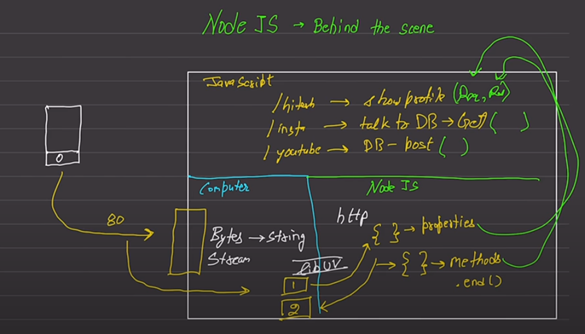 Node JS → Behind the scene
JavaScript
/hitesh → show profile (Req, Res)
/insta → talk to DB → (get) ( )
/youtube → DB - post ( )
Computer
Node JS
80
http
Bytes → String
Stream
LibUV
{ } → properties
→ { } → methods
.end()
1
2